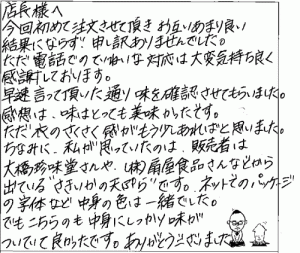 店長様へ
今回初めて注文させて頂きお互いあまり良い
結果にならず 申し訳ありませんでした。
ただ電話でのていねいな対応は大変気持ち良く
感謝しております。
早速言って頂いた通り味を確認させてもらいました。
感想は、味はとっても美味かったです。
ただ衣のさくさく感がもう少しあればと思いました。
ちなみに、私が思っていたのは、販売者は
大橋珍味堂さんや、(株)扇屋食品さんなどから
出ている"さきいかの天ぷら"です。ネットでのパッケージ
の字体など中身の色は一緒でした。
でもこちらのも中身にしっかり味が
ついていて良かったです。ありがとうございました